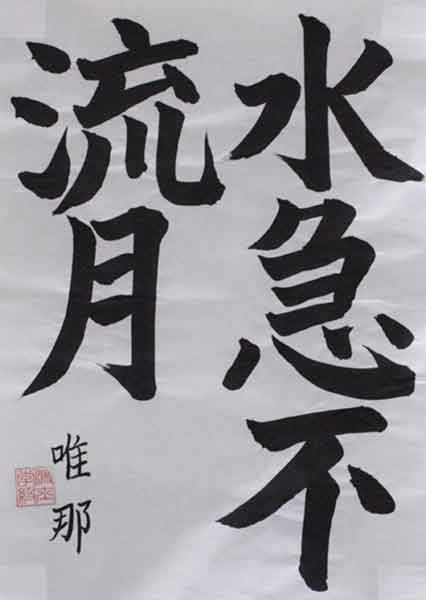 水急不
流月
唯那